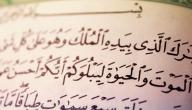 بِسْ
بَٰرَكَ ٱلَّذِى بِيَدِهِ ٱلْمُلْكُ وَهُوَ عَلَىٰ كُلِّ
ٱلْمَوْتَ وَٱلْحَيَوٰةَ لِيَبْلُوَكُمْ أَيُّكُمْ أَحْسَنُ عَمَ
سَبْعَ سَمَٰوَٰتٍ طِبَاقًا مَّا